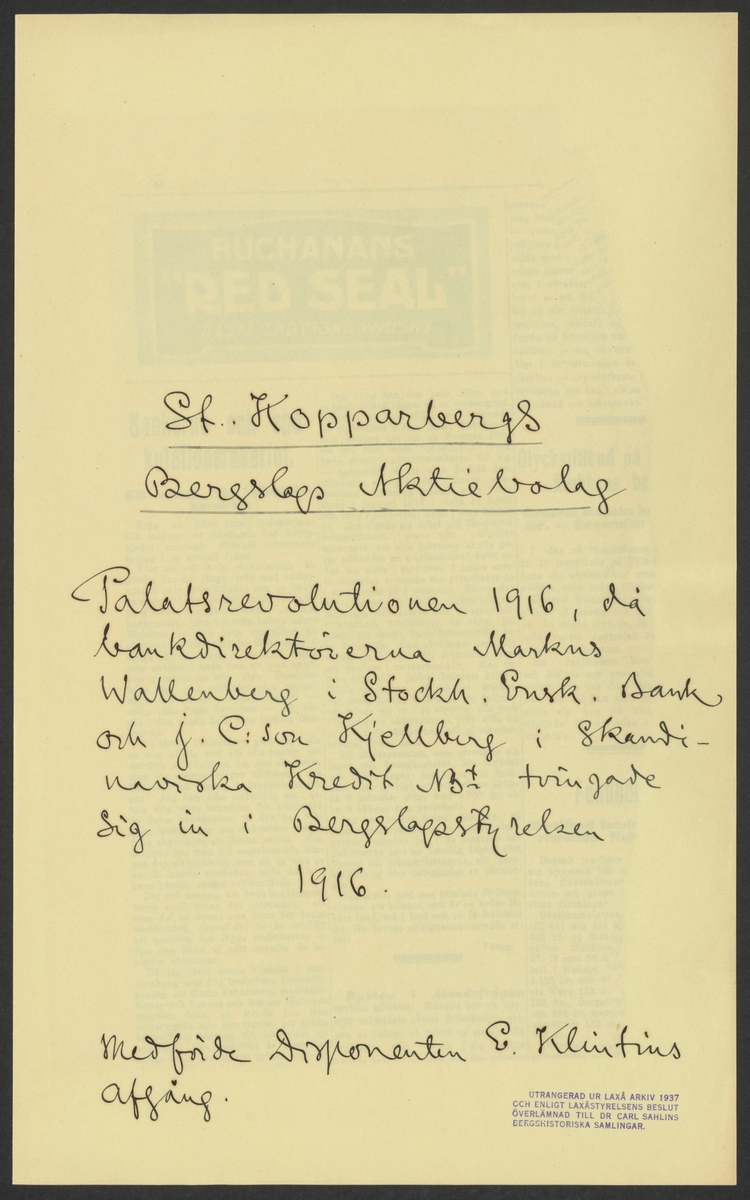 BUCHANANS
"RED SEAL"
St. Kopparbergs
Bergslags Aktiebolag
Palatsrevolutionen 1916, då
bankdirektörerna Markus
Wallenberg i Stockh. Ensk. Bank
och J. C:son Kjellberg i Skandi-
naviska Kredit AB:t tvingade
sig in i Bergslagsstyrelsen
1916.
Medförde Disponenten E. Klintins
afgång.
UTRANGERAD UR LAXÅ ARKIV 1937
OCH ENLIGT LAXÅSTYRELSENS BESLUT
ÖVERLÄMNAD TILL DR CARL SAHLINS
BERGSHISTORISKA SAMLINGAR.